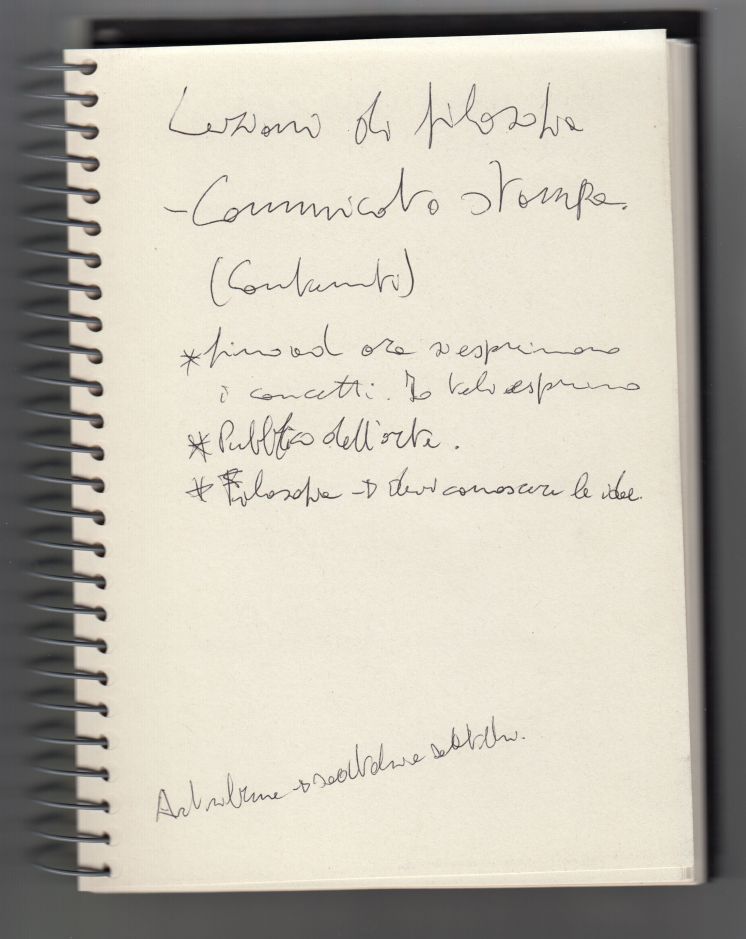 Lezioni di filosofia
- Comunicato stampa.
(Contenuti)
* fino ad ora si esprimono
i concetti. Io te lo esprimo
* Pubblico dell'arte.
* Filosofia → devi conoscere le idee.